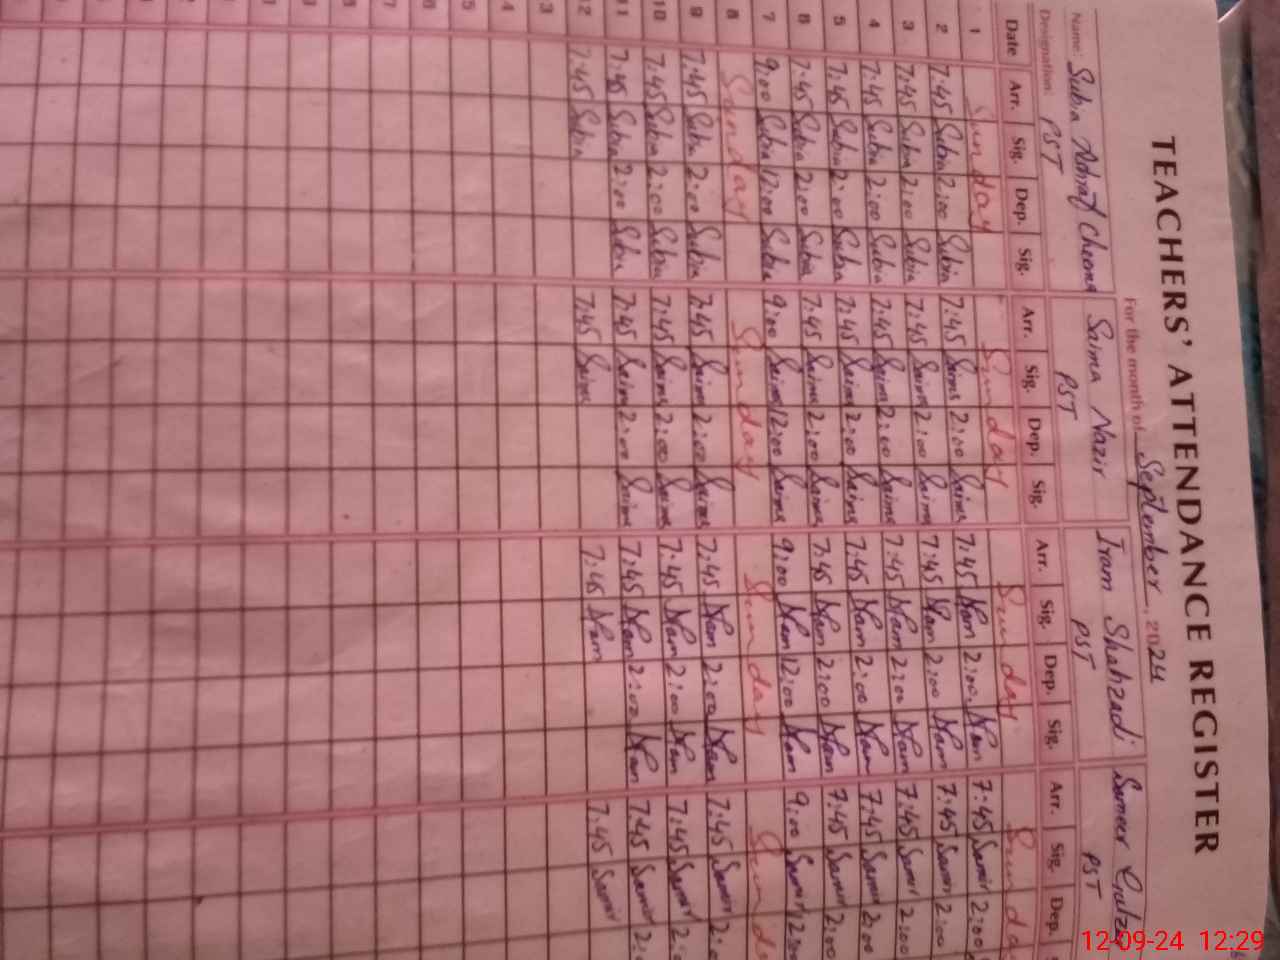 TEACHERS' ATTENDANCE REGISTER
For the month of September, 2024
Name: Subia Ashraf Cheema Saima Nazir Iram Shahzadi Sameer
Designation: PST PST PST PST
Date Arr. Sig. Dep. Sig. Arr. Sig. Dep. Sig. Arr. Sig. Dep. Sig. Arr. Sig. Dep.
1 Sunday Sunday Sunday Sunda
2 7:45 Subia 2:00 Subia 7:45 Saima 2:00 Saima 7:45 Iram 2:00 Iram 7:45 Samir 2:00
3 7:45 Subia 2:00 Subia 7:45 Saima 2:00 Saima 7:45 Iram 2:00 Iram 7:45 Samir 2:00
4 7:45 Subia 2:00 Subia 7:45 Saima 2:00 Saima 7:45 Iram 2:00 Iram 7:45 Samir 2:00
5 7:45 Subia 2:00 Subia 7:45 Saima 2:00 Saima 7:45 Iram 2:00 Iram 7:45 Samir 2:00
6 7:45 Subia 2:00 Subia 7:45 Saima 2:00 Saima 7:45 Iram 2:00 Iram 7:45 Samir 2:00
7 9:00 Subia 12:00 Subia 9:00 Saima 12:00 Saima 9:00 Iram 12:00 Iram 9:00 Samir 12:00
8 Sunday Sunday Sunday Sund
9 7:45 Subia 2:00 Subia 7:45 Saima 2:00 Saima 7:45 Iram 2:00 Iram 7:45 Samir
10 7:45 Subia 2:00 Subia 7:45 Saima 2:00 Saima 7:45 Iram 2:00 Iram 7:45 Samir
11 7:45 Subia 2:00 Subia 7:45 Saima 2:00 Saima 7:45 Iram 2:00 Iram 7:45 Samir
12 7:45 Subia 7:45 Saima 7:45 Iram 7:45 Samir
12-09-24 12:29